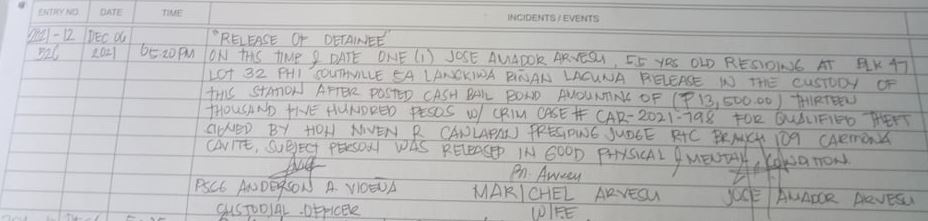 ENTRY NO. DATE TIME INCIDENTS / EVENTS
2021-12 DEC 06 "RELEASE OF DETAINEE"
526 2021 05:20 PM ON THIS TIME & DATE ONE (1) JOSE AMADOR ARVESU, 55 YRS OLD RESIDING AT BLK 47
LOT 32 PH1 SOUTHVILLE 5A LANGKIWA BIÑAN LAGUNA RELEASE IN THE CUSTODY OF
THIS STATION AFTER POSTED CASH BAIL BOND AMOUNTING OF (₱13,500.00) THIRTEEN
THOUSAND FIVE HUNDRED PESOS W/ CRIM CASE # CAR-2021-798 FOR QUALIFIED THEFT
SIGNED BY HON NIVEN R CANLAPAN PRESIDING JUDGE RTC BRANCH 109 CARMONA
CAVITE, SUBJECT PERSON WAS RELEASED IN GOOD PHYSICAL & MENTAL CONDITION.
PSCG ANDERSON A. VIDEÑA MARICHEL ARVESU JOSE AMADOR ARVESU
CUSTODIAL OFFICER WIFE